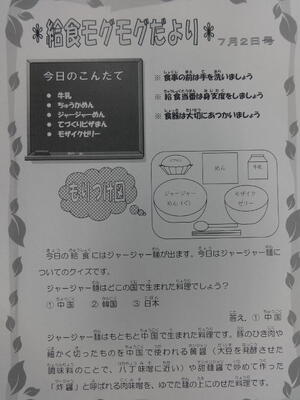 ＊給食モグモグだより＊
７月２日号
今日のこんだて
● 牛乳
● ちゅうかめん
● ジャージャーめん
● てづくりピザまん
● モザイクゼリー
※ 食事の前は手を洗いましょう
※ 給食当番は身支度をしましょう
※ 食器は大切にあつかいましょう
もりつけ図
めん
牛乳
ジャージャー
めん（ぐ）
モザイク
ゼリー
今日の給食にはジャージャー麺が出ます。今日はジャージャー麺に
ついてのクイズです。
ジャージャー麺はどこの国で生まれた料理でしょう？
① 中国 ② 韓国 ③ 日本
答え．① 中国
ジャージャー麺はもともと中国で生まれた料理です。豚のひき肉や
細かく切ったものを中国で使われる黄醤（大豆を発酵させた
調味料のことで、八丁味噌に近い）や甜麺醤で炒めて作った
「炸醤」と呼ばれる肉味噌を、ゆでた麺の上にのせた料理です。